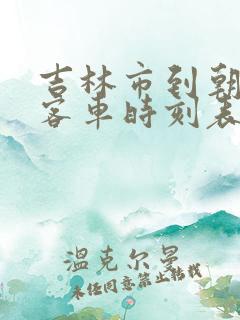 吉林市到朝
客车时刻表
温克尔曼
未经同意禁止转载